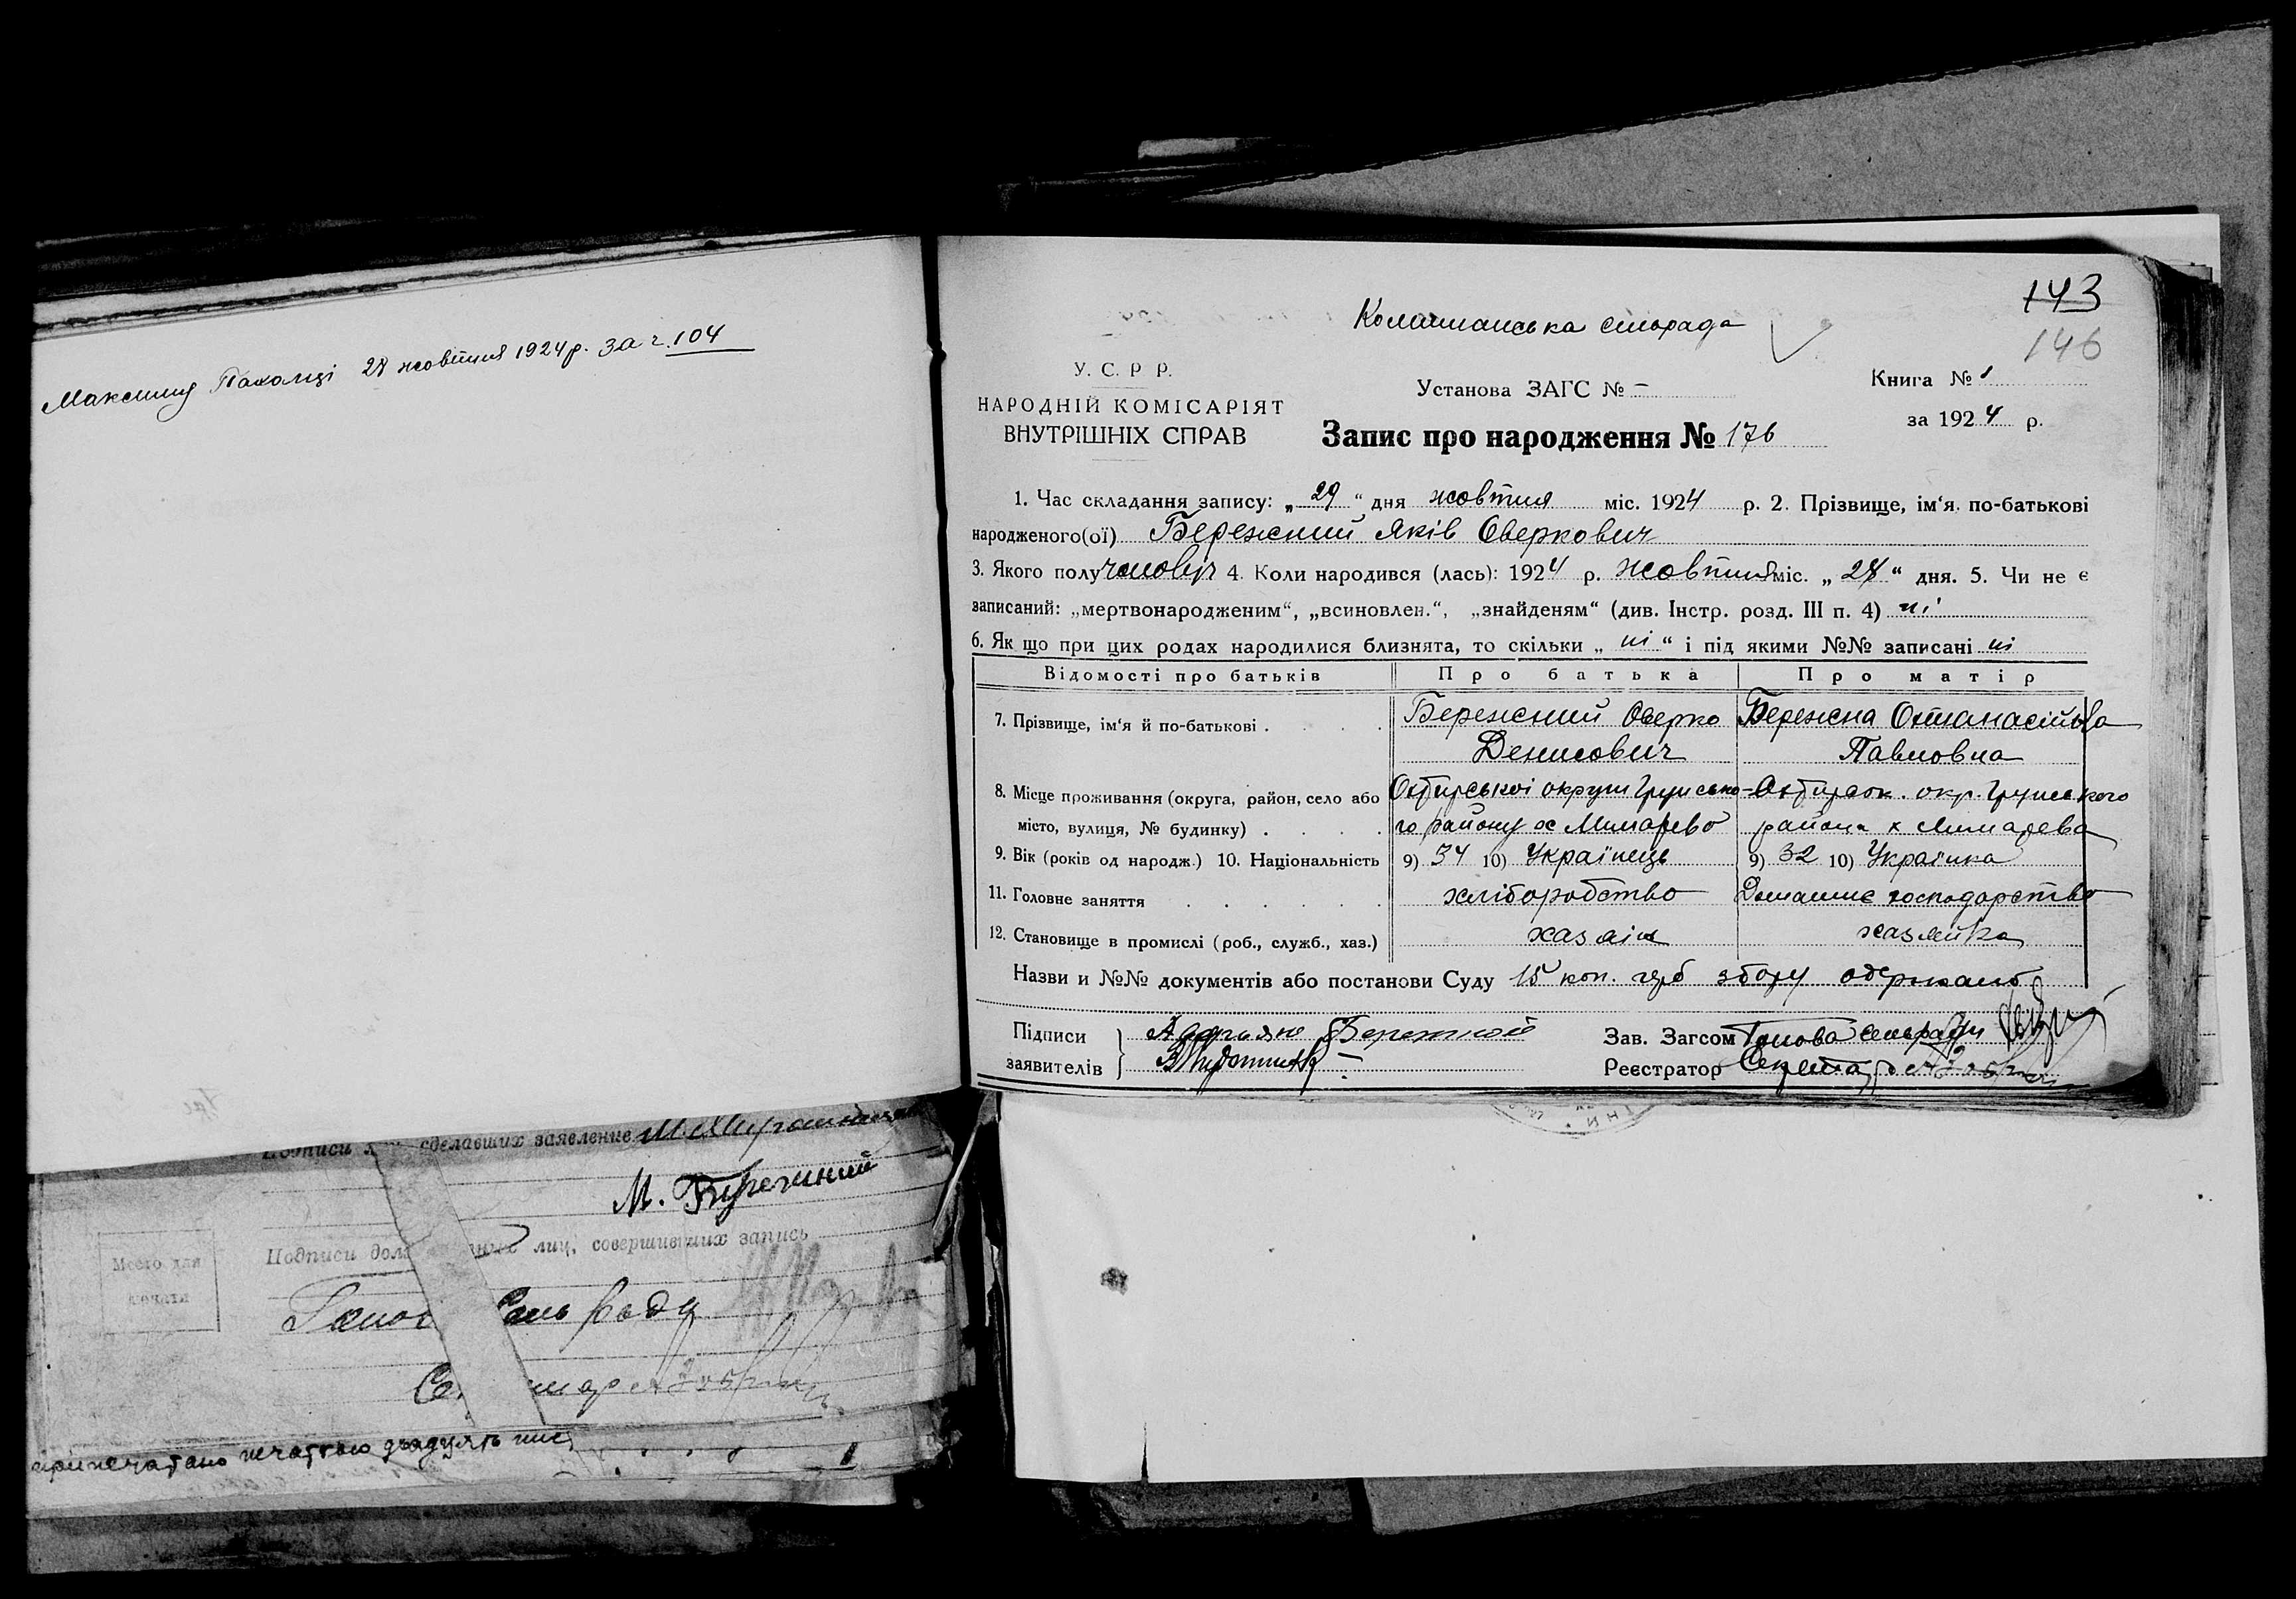 Максиму Пахомці 28 жовтня 1924 р. за ч. 104
сделавших заявление
М.
Место для
печати
Подписи лиц, совершивших запись
Сель Ради
припечатано печаттю двадцять
143
146
сільрада
У. С. Р Р.
НАРОДНІЙ КОМІСАРІЯТ
ВНУТРІШНІХ СПРАВ
Установа ЗАГС № –
Запис про народження № 176
Книга № 1
за 1924 р.
1. Час складання запису: „ 29 “ дня жовтня міс. 1924 р. 2. Прізвище, ім‘я, по-батькові
народженого(ої) Бережний Яків Оверкович
3. Якого полу чоловіч 4. Коли народився (лась): 1924 р. жовтня міс. „ 28 “ дня. 5. Чи не є
записаний: „мертвонародженим“, „всиновлен.“, „знайденям“ (див. Інстр. розд. III п. 4) ні
6. Як що при цих родах народилися близнята, то скільки „ ні “ і під якими №№ записані ні
Відомості про батьків Про батька Про матір
7. Прізвище, ім‘я й по-батькові . Бережний Оверко Бережна
Денисович Павловна
8. Місце проживання (округа, район, село або Охтирської округи Грунсько- Охтирськ. окр. Грунського
місто, вулиця, № будинку) . го району х района х
9. Вік (років од народж.) 10. Національність 9) 34 10) Українець 9) 32 10) Українка
11. Головне заняття хліборобство Домашнє господарство
12. Становище в промислі (роб., служб., хаз.) хазяїн хазяйка
Назви и №№ документів або постанови Суду 15 коп. герб збору одержано
Підписи Бережной Зав. Загсом Голова сельради
заявителів Реєстратор Секретар